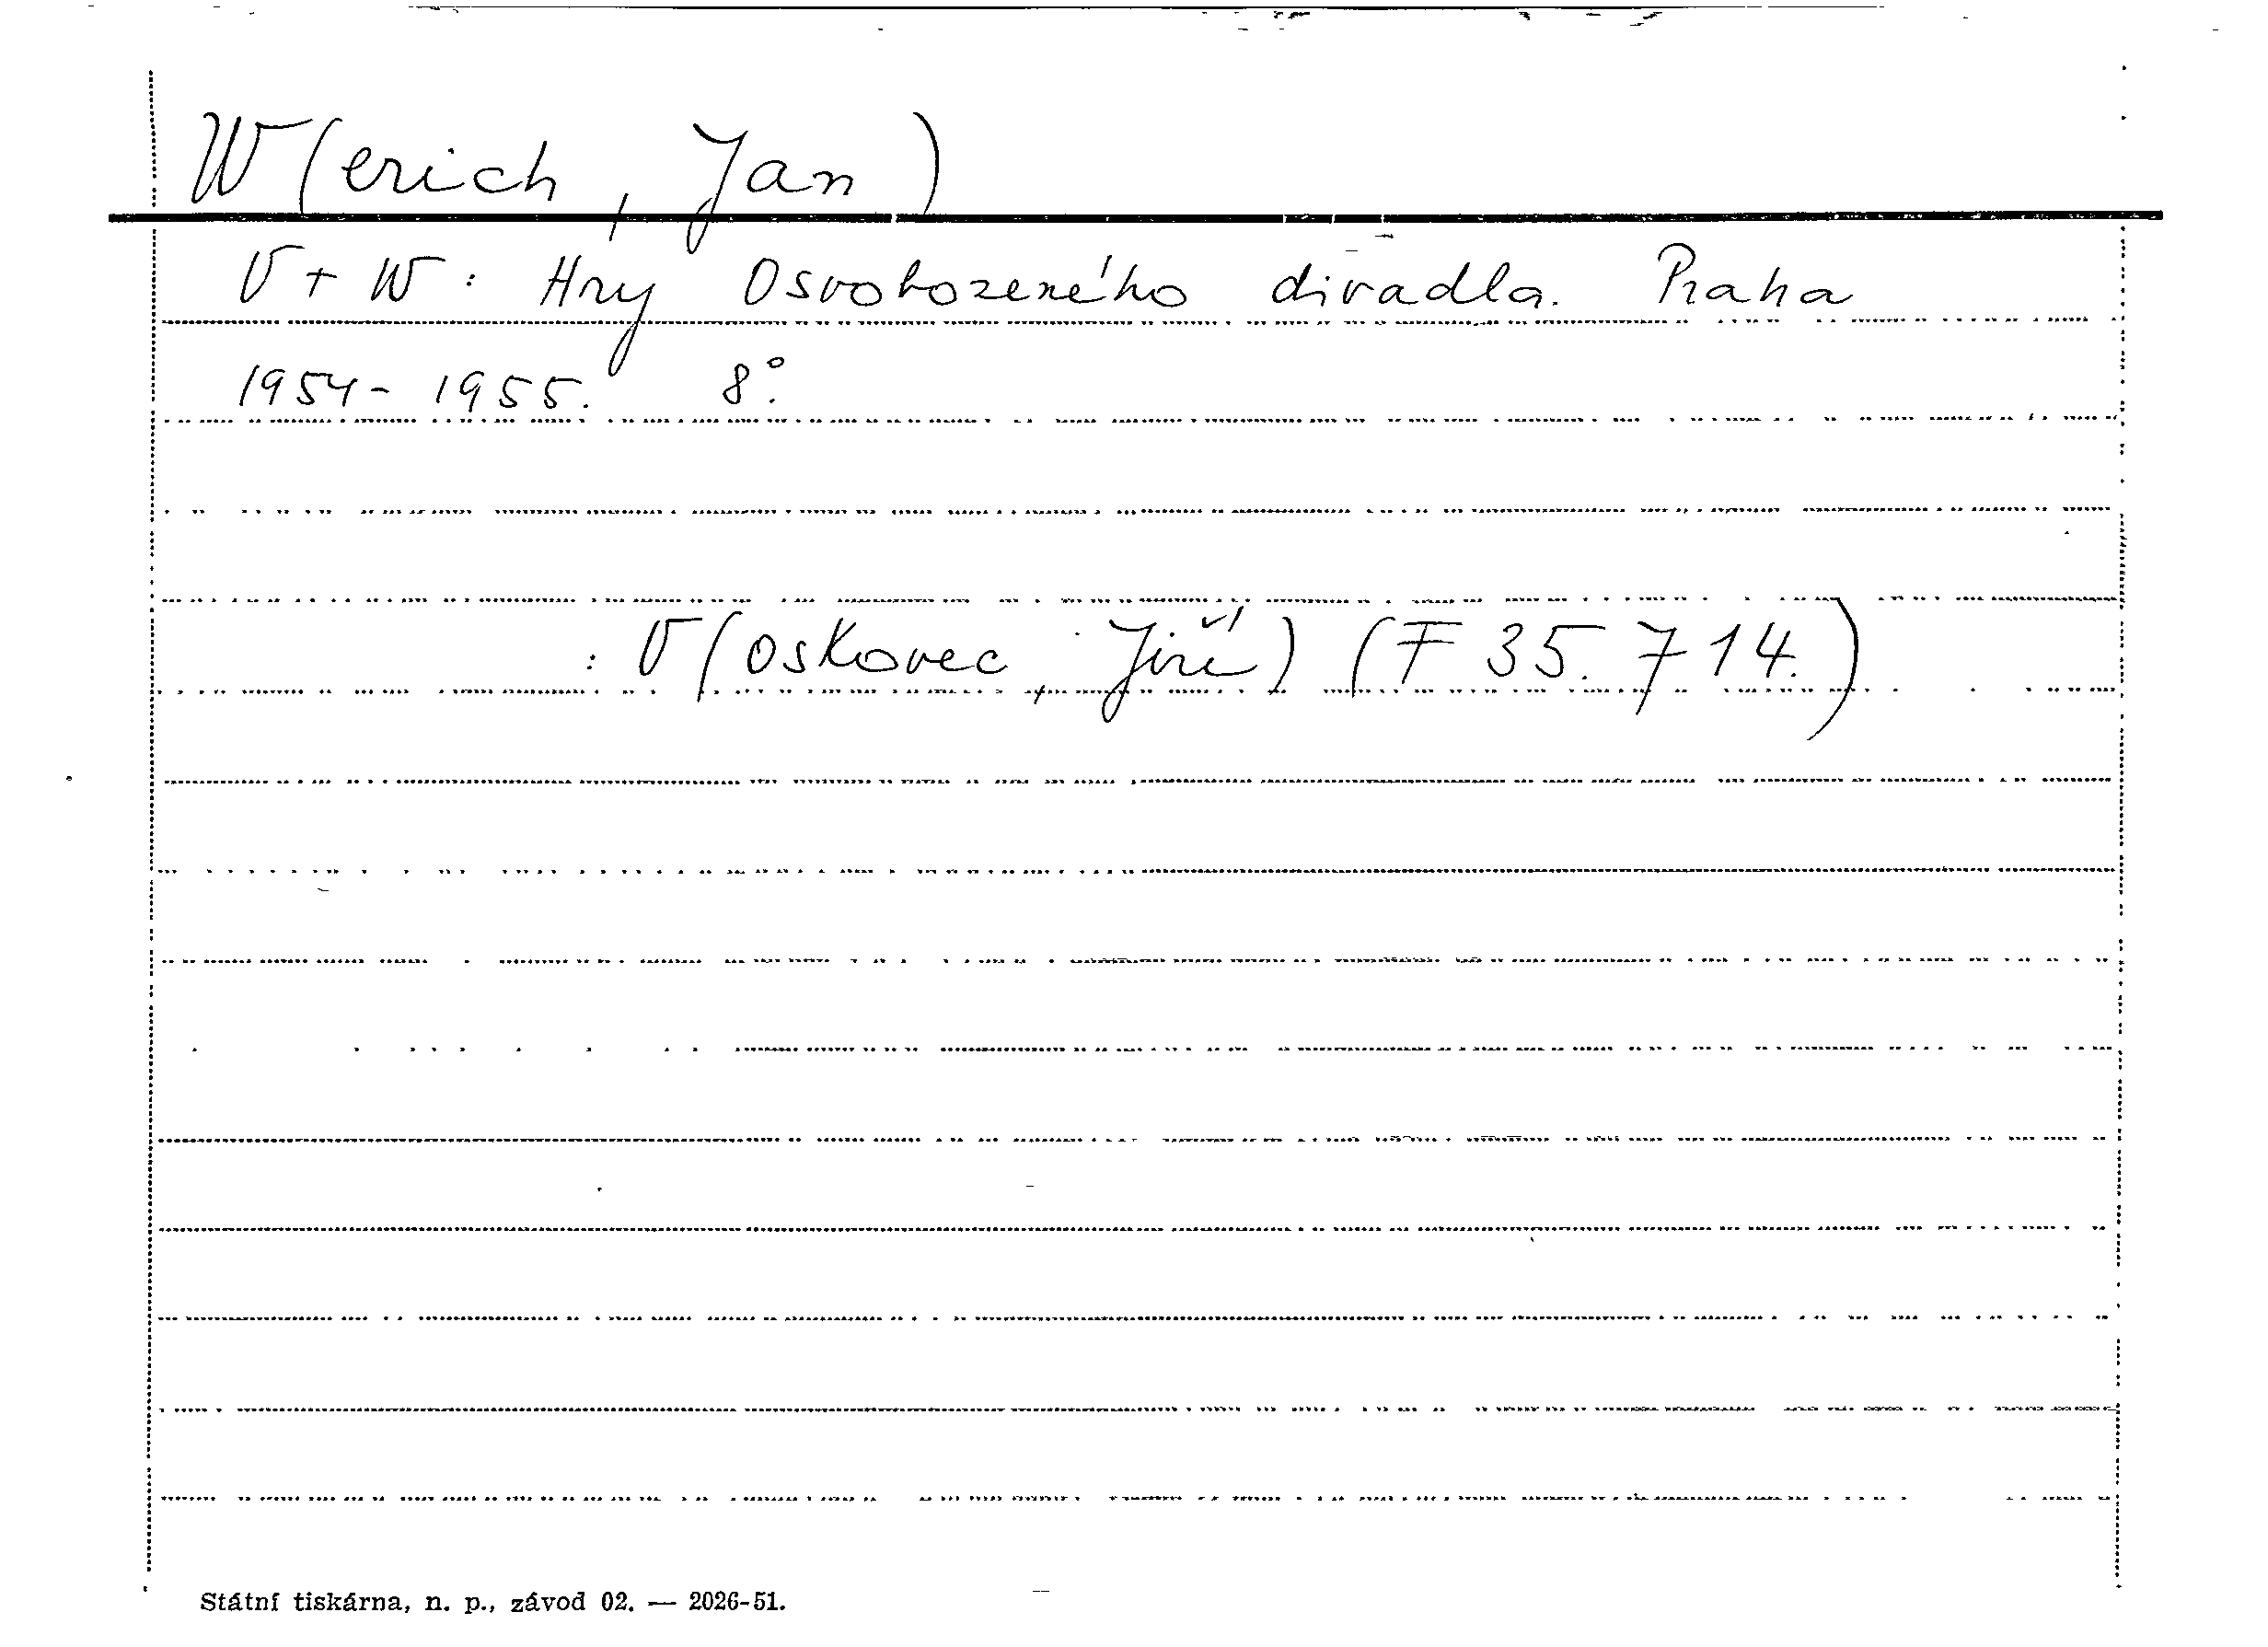 W(erich, Jan)
V + W: Hry Osvobozeného divadla. Praha
1954- 1955. 8°.
: V(oskovec, Jiří) (F 35.714.)
Státní tiskárna, n. p., závod 02. — 2026-51.